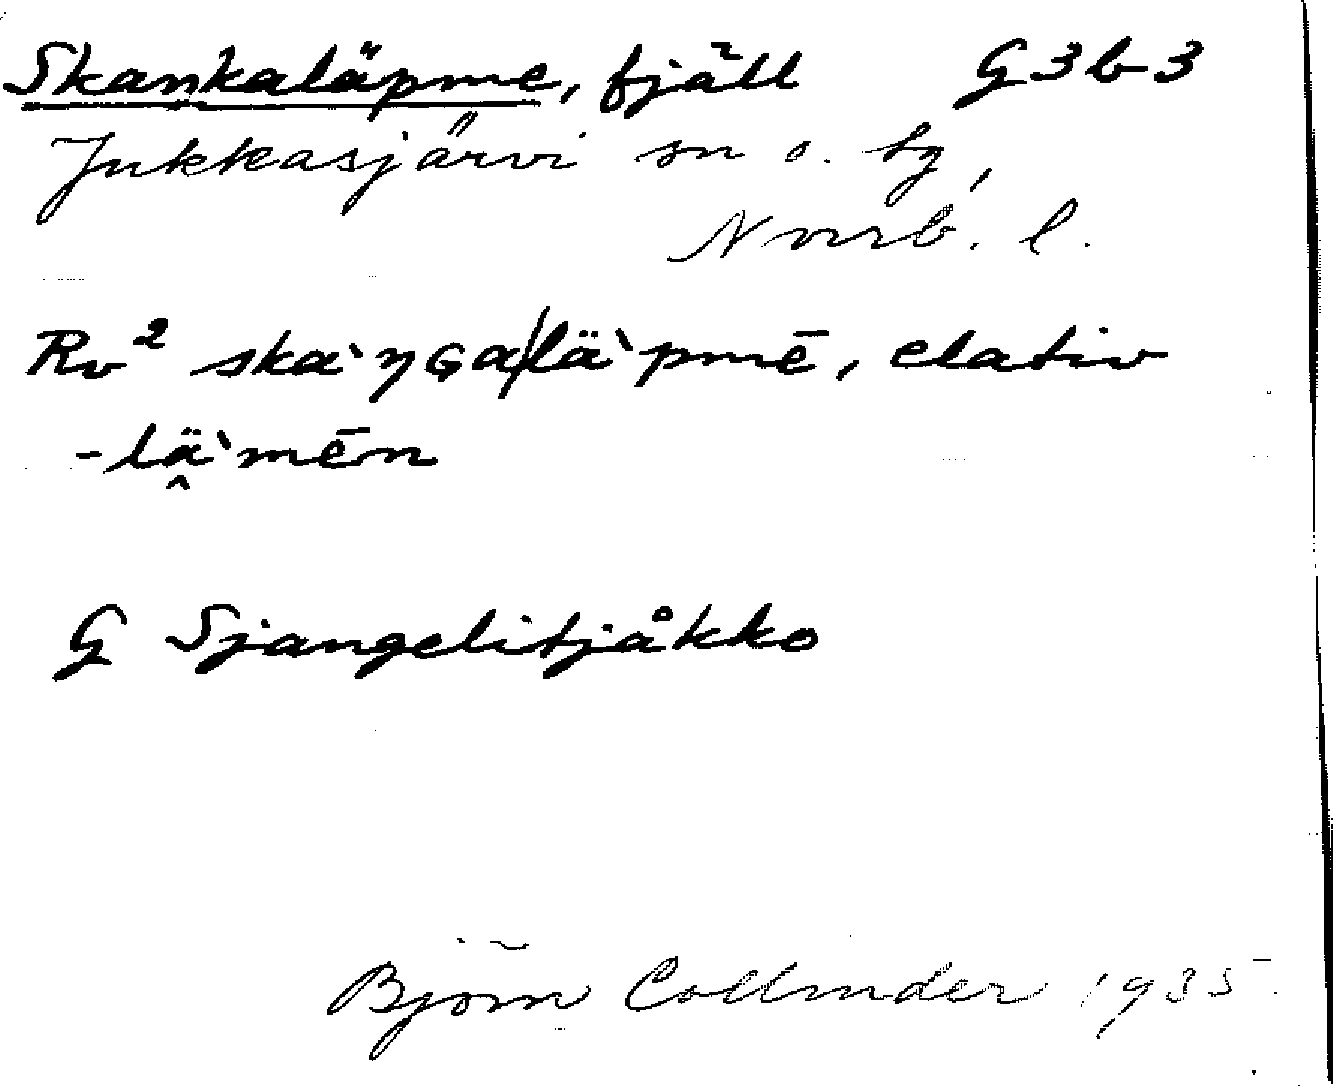 Skankaläpme, fjäll G3b3
Jukkasjärvi sn o. tg,
Norrb. l.
Rv² ska`ŋɢa/lä`pmē, elativ
-lä̭`mēn
G Sjangelitjåkko
Björn Collinder 1935